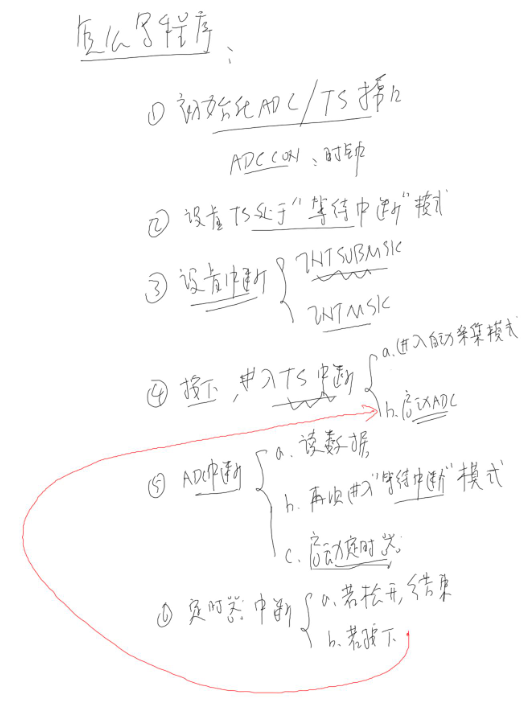 怎么写程序:
① 初始化ADC/TS接口
ADCCON、时钟
② 设置TS处于"等待中断"模式
③ 设置中断 { INTSUBMSK
INTMSK
④ 按下,进入TS中断 { a.进入自动采集模式
b.启动ADC
⑤ ADC中断 { a. 读数据
b. 再次进入"等待中断"模式
c. 启动定时器
⑥ 定时器中断 { a.若松开,结束
b.若按下